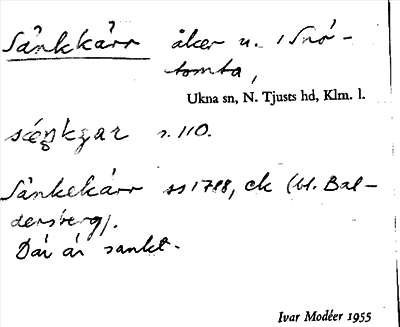 Sänkkärr åker u. Snö-
tomta,
Ukna sn, N. Tjusts hd, Klm. l.
s. 110.
Sänkekärr ss 1788, ek (bl. Bal-
dersberg).
Där är sankt.
Ivar Modéer 1955